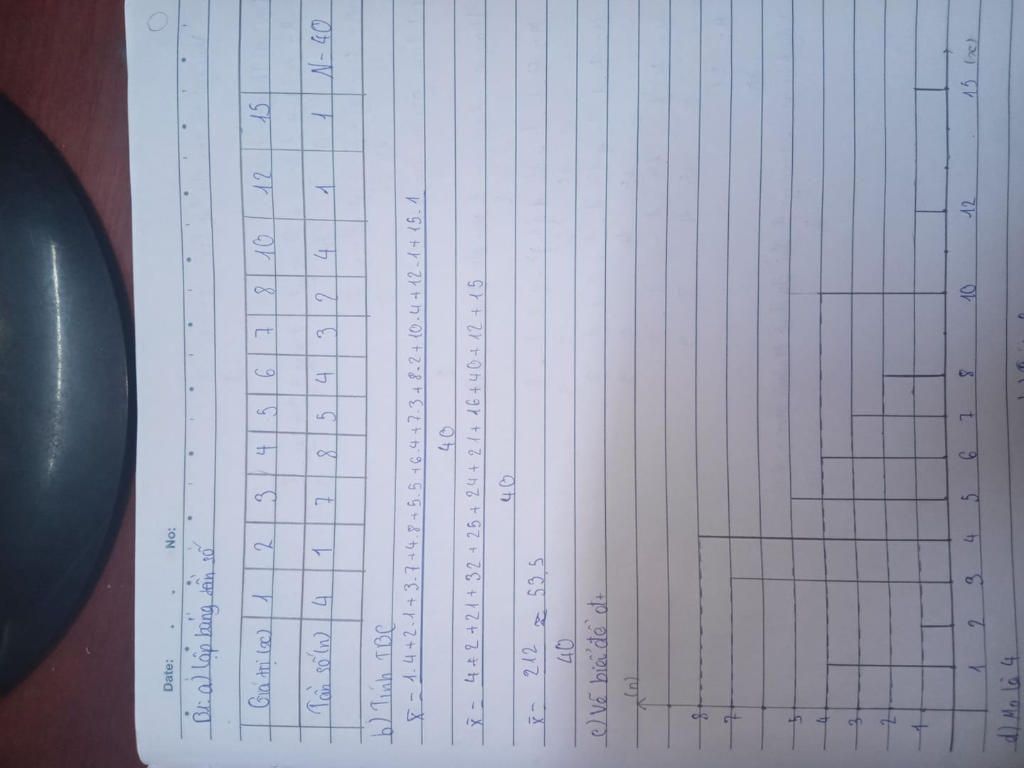 Date: No:
Br: a) lập bảng tần số
Giá trị (x) 1 2 3 4 5 6 7 8 10 12 15
Tần số (n) 4 1 7 8 5 4 3 2 4 1 1 N=40
b) Tính TBC
X̄ = 1.4+2.1+3.7+4.8+5.5+6.4+7.3+8.2+10.4+12.1+15.1
40
x̄ = 4+2+21+32+25+24+21+16+40+12+15
40
x̄ = 212 ≈ 53,5
40
c) Vẽ biểu đồ đt
(n)
8
7
5
4
3
2
1
1 2 3 4 5 6 7 8 10 12 15 (x)
d) Mo là 4